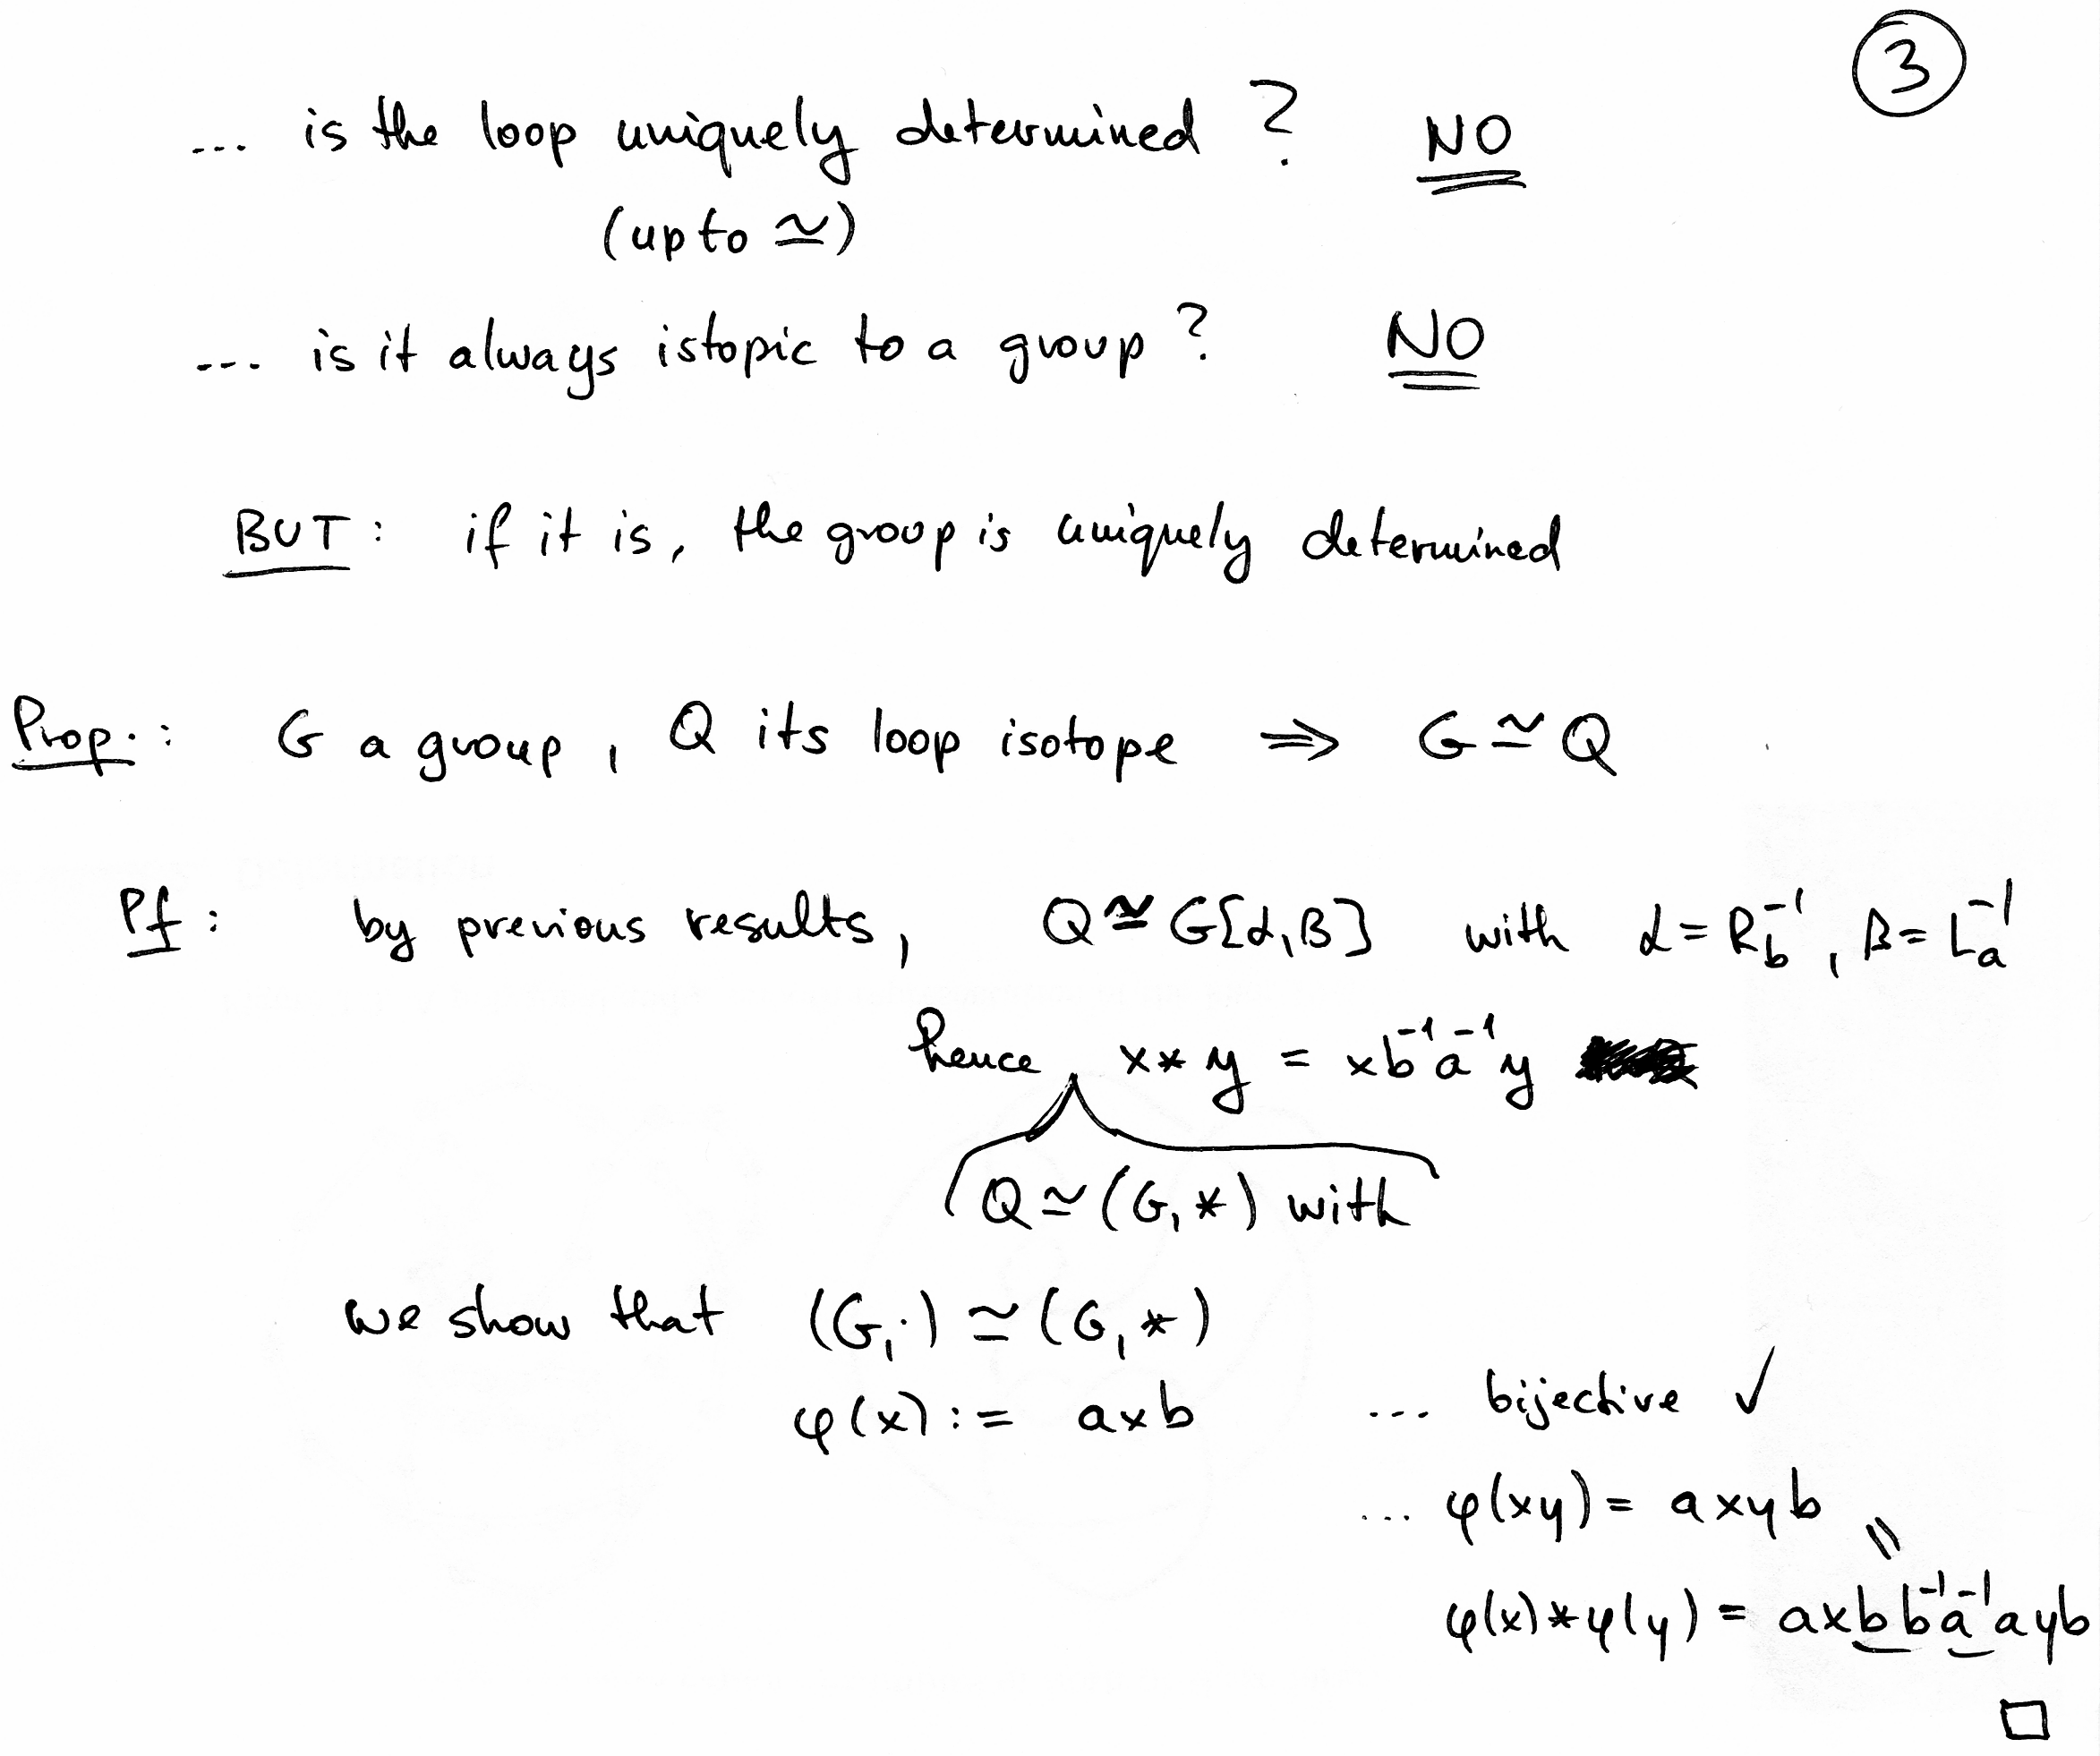 3
... is the loop uniquely determined ? NO
(up to ≃)
... is it always istopic to a group ? NO
BUT : if it is, the group is uniquely determined
Prop. : G a group, Q its loop isotope ⇒ G ≃ Q
Pf : by previous results, Q ≃ G[α,β] with α = R_b^{-1}, β = L_a^{-1}
hence x * y = xb^{-1}a^{-1}y
Q ≃ (G,*) with
we show that (G,·) ≃ (G,*)
φ(x) := axb ... bijective ✓
... φ(xy) = axyb
=
φ(x)*φ(y) = axbb^{-1}a^{-1}ayb
□